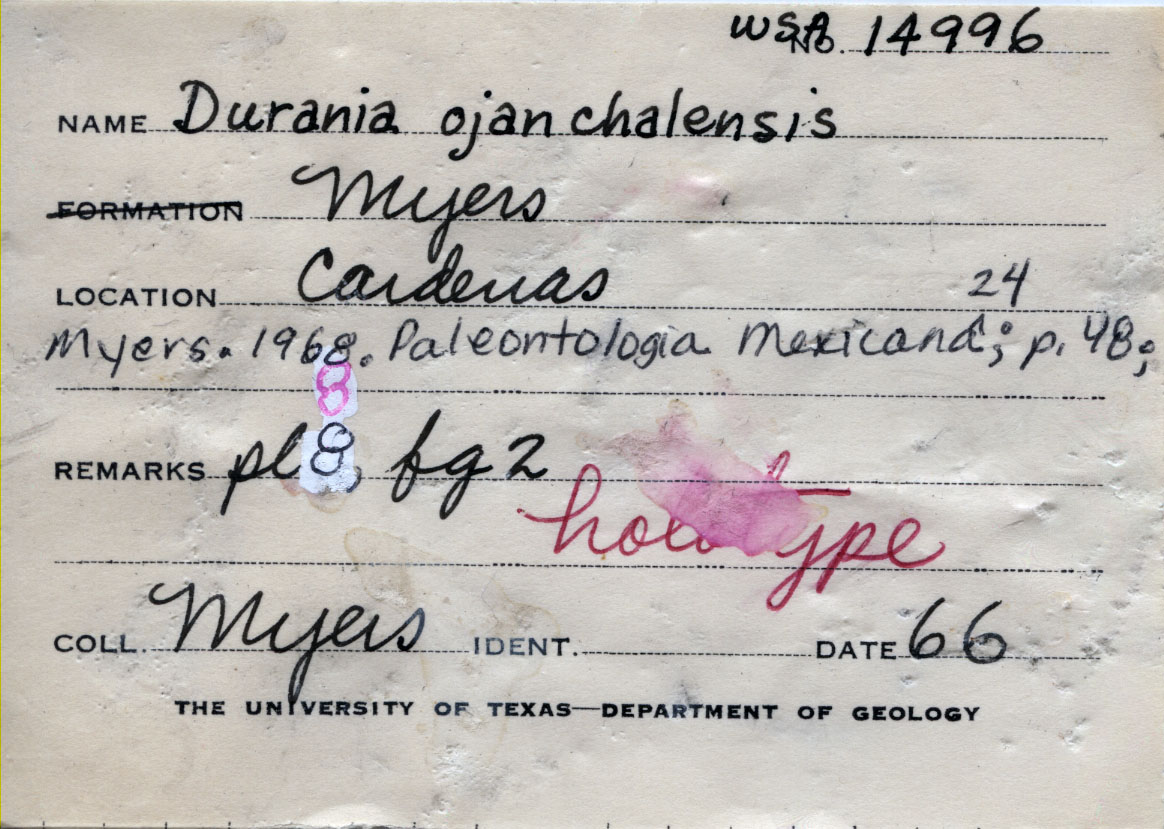 WSA NO. 14996
NAME Durania ojanchalensis
FORMATION Myers
LOCATION Cardenas 24
Myers. 1968. Paleontologia Mexicana; p. 48;
8
REMARKS pl 8, fg 2
holotype
COLL. Myers IDENT. DATE 66
THE UNIVERSITY OF TEXAS—DEPARTMENT OF GEOLOGY